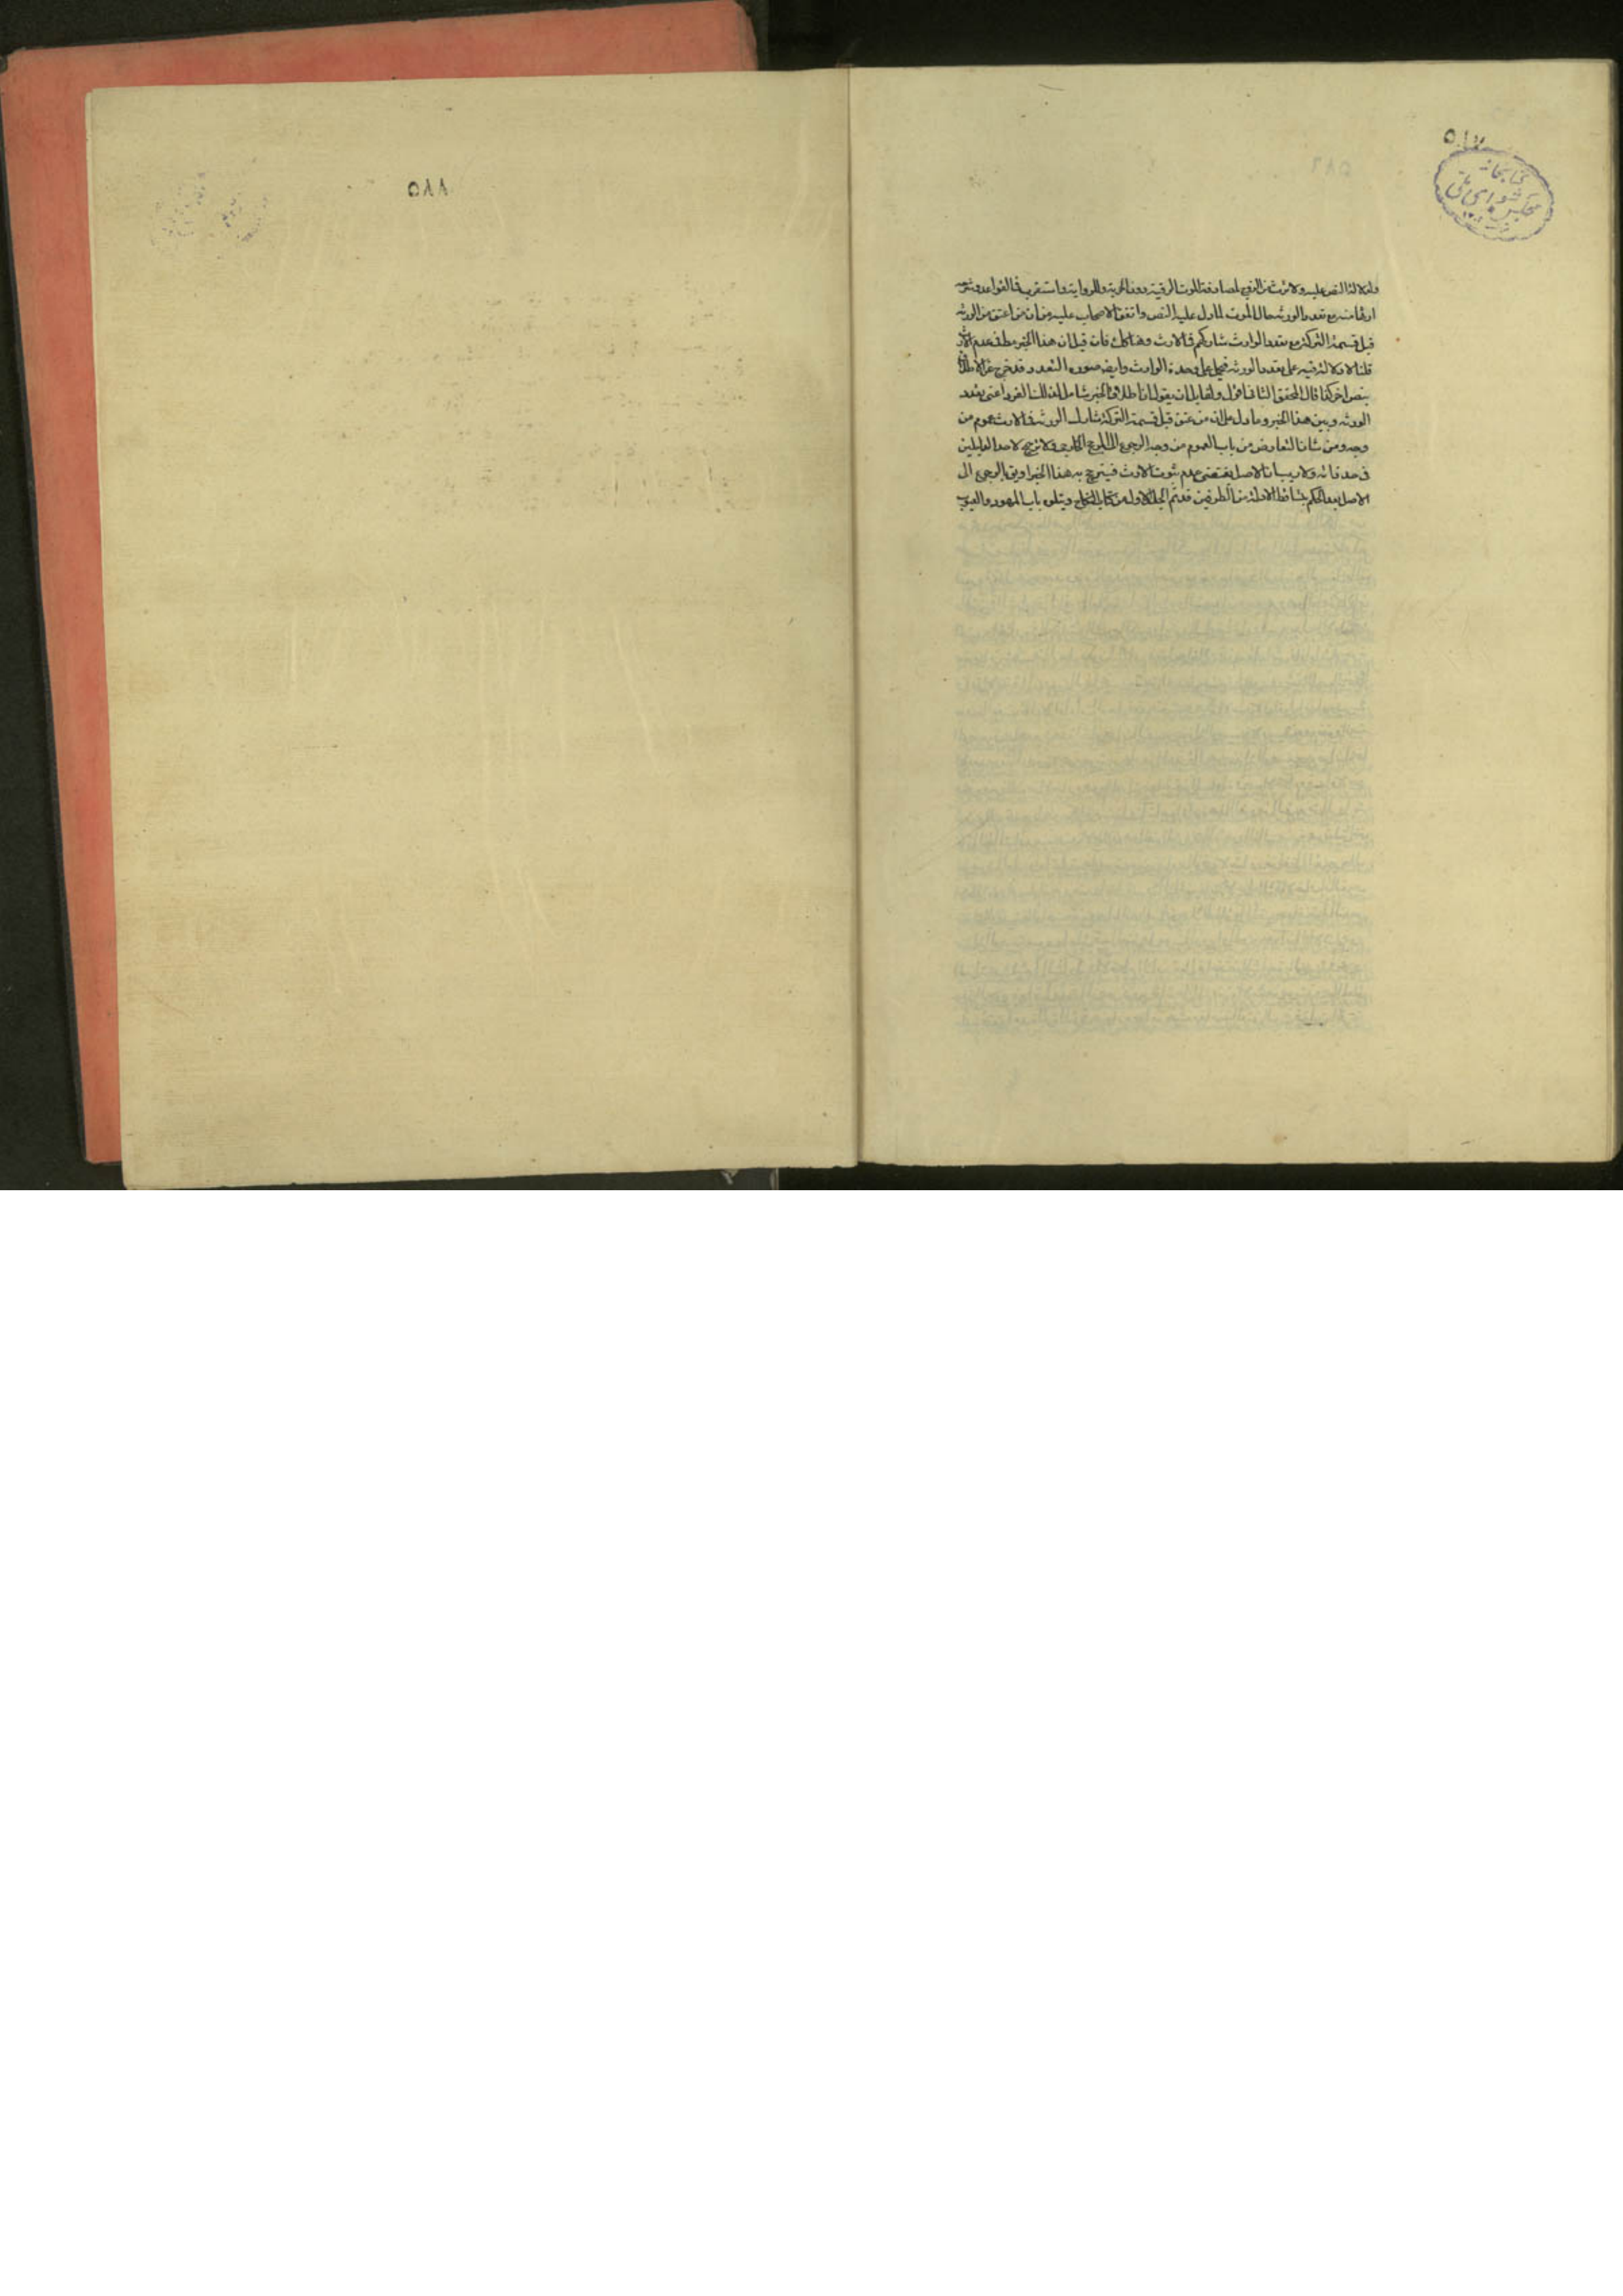 ۵۸۷
کتابخانه
مجلس شورای ملی
ولدلالة النص عليه ولا ترث من الزوج لمصادفة الموت الرقية دون الحرية وللرواية واستقرب في القواعد
ارثها منه مع تعدد الورثة حال الموت لما دل عليه النص واتفق الاصحاب عليه من ان من اعتق من الورثه
قبل قسمة التركة مع تعدد الوارث شاركهم في الارث وهنا كك فان قيل ان هذا الخبر مطلق في عدم الارث
قلنا لا دلالة فيه على تعدد الورثه فيحمل على وحدة الوارث وايضا صورة التعدد قد خرج عن الاطلاق
بنص اخر كذا قال المحقق الثاني اقول ولقايل ان يقول ان اطلاق الخبر شامل لذلك الفرد اعنى تعدد
الورثه وبين هذا الخبر وما دل على ان من عتق قبل قسمة التركة شارك الورثه في الارث عموم من
وجه ومن شان التعارض من باب العموم من وجه الرجوع الى المرجح الخارجى ولا ترجيح لاحد الدليلين
فى حد ذاته ولا ريب ان الاصل يقتضى عدم ثبوت الارث فيترجح به هذا الخبر او يق بالرجوع الى
الاصل بعد الحكم بتساقط الادلة من الطرفين قد تم الجلد الاول من كتاب النكاح ويتلوه باب المهور والعيوب
۵۸۸